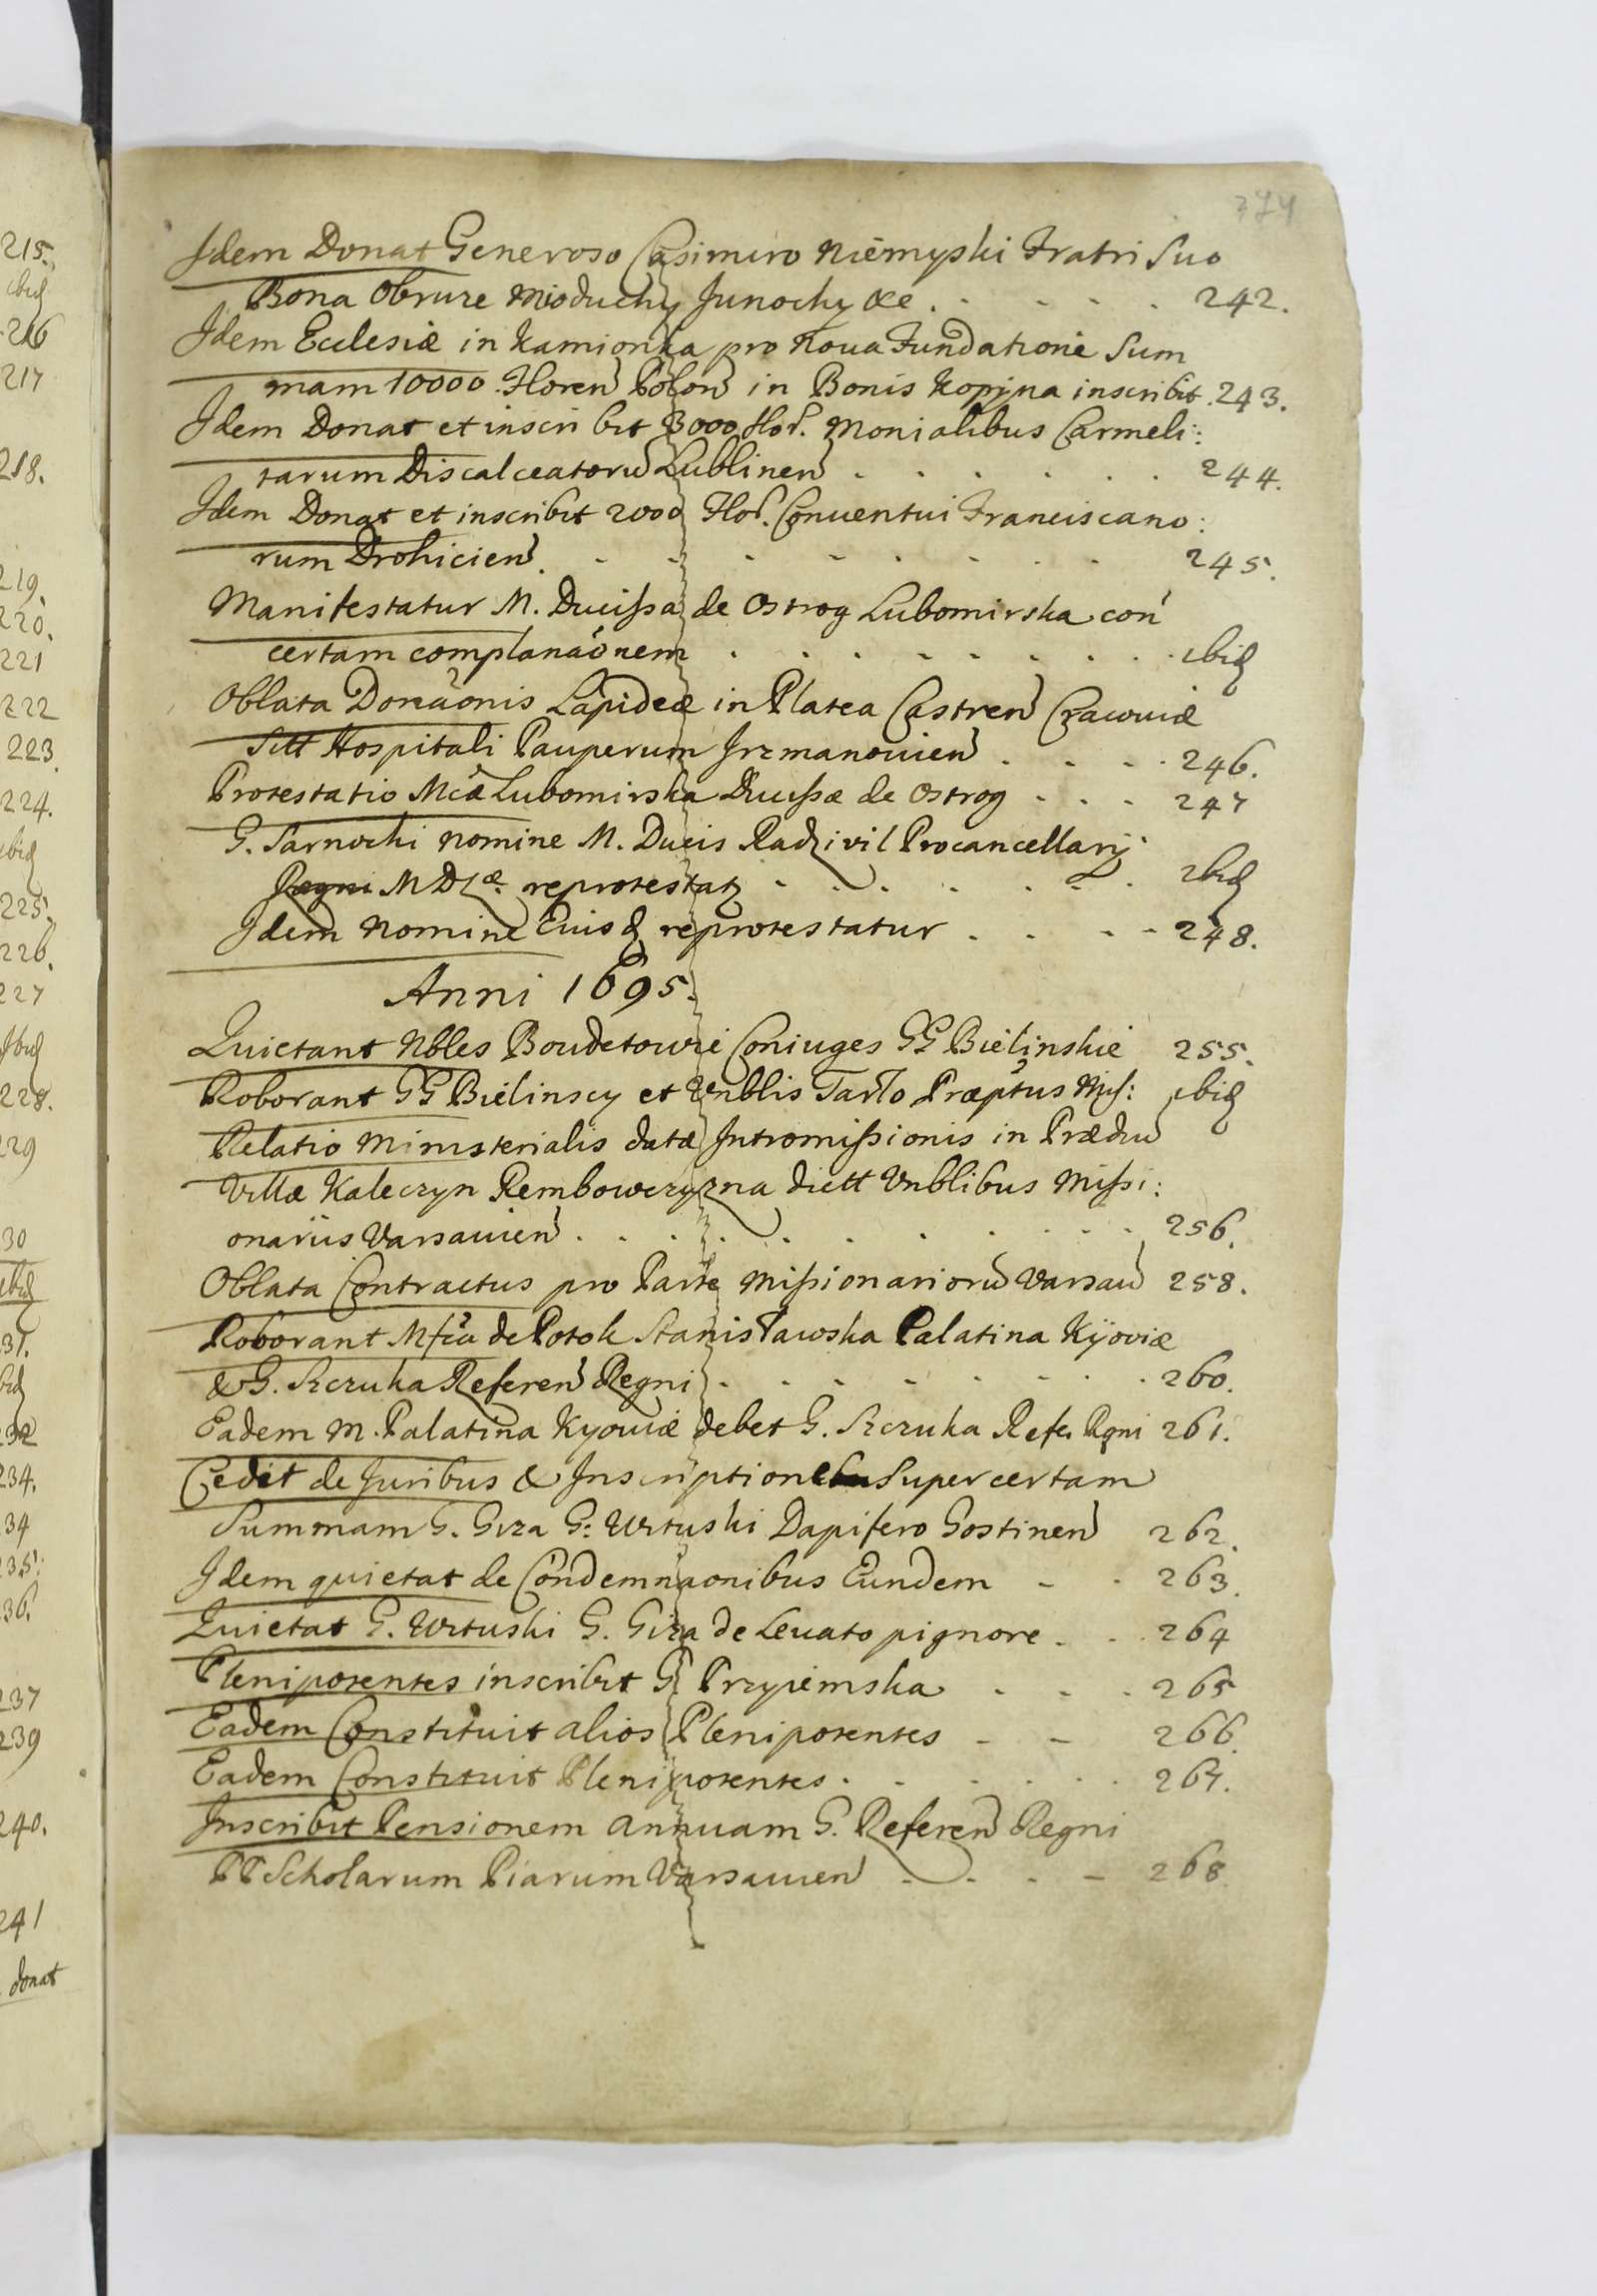 374
Idem Donat Generoso Casimiro Niemyski Fratri Suo
Bona Obrure Mioduchy Junochy &c. - - - - 242.
Idem Ecclesiæ in Kamionka pro Noua Fundatione Sum
mam 10000 Floren Polon in Bonis Kopyna inscribit. 243.
Idem Donat et inscribit 3000 Flor. Monialibus Carmeli:
tarum Discalceatoru Lublinen . . . . . . 244.
Idem Donat et inscribit 2000 Flor. Conuentui Franciscano:
rum Drohicien. - - - - - - - 245.
Manifestatur M. Ducissa de Ostrog Lubomirska con
certam complanaonem . . . . . . . ibid
Oblata Donaonis Lapideæ in Platea Castren Cracouiæ
Sitt Hospitali Pauperum Irzmanouien . - - . 246.
Protestatio Mcæ Lubomirska Ducissæ de Ostrog - - - 247
G. Sarnocki nomine M. Ducis Radziuil Procancellarij
Regni M D Læ. reprotestatz - . . . . . ibid
Idem Nomine Eiusd reprotestatur . . - - 248.
Anni 1695.
Quietant Nbles Boudetowie Coniuges GG Bielinskie 255.
Roborant GG Bielinscy et Vnblis Tarło Præptus Miss: ibid
Relatio Ministerialis datæ Intromissionis in Prædiu
Villæ Kaleczyn Rembowczyzna dictt Vnblibus Missi:
onariis Varsauien . . . . . . . . 256.
Oblata Contractus pro Parte Missionarioru Varsau 258.
Roborant Mfica de Potok Stanisławska Palatina Kijoviæ
& G. Szczuka Referen Regni . - - - - - . 260.
Eadem M. Palatina Kyouiæ debet G. Szczuka Refer Rgni 261.
Cedit de Juribus & Inscriptione Super certam
Summam G. Giza G: Wrtuski Dapifero Gostinen 262.
Idem quietat de Condemnaonibus Eundem - . 263.
Quietat G. Wrtuski G. Giza de Leuato pignore. . . 264
Plenipotentes inscribit G Przyiemska . - - 265
Eadem Constituit alios Plenipotentes - - 266.
Eadem Constituit Plenipotentes . . . . . 267.
Inscribit Pensionem Annuam G. Referen Regni
PP Scholarum Piarum Varsauien . . . - 268
215.
ibid
216
217
218.
219.
220.
221
222
223.
224.
ibid
225.
226.
227
Ibid
228.
229
30
ibid
31.
32
234.
34
235.
36.
237
239
240.
241
donat